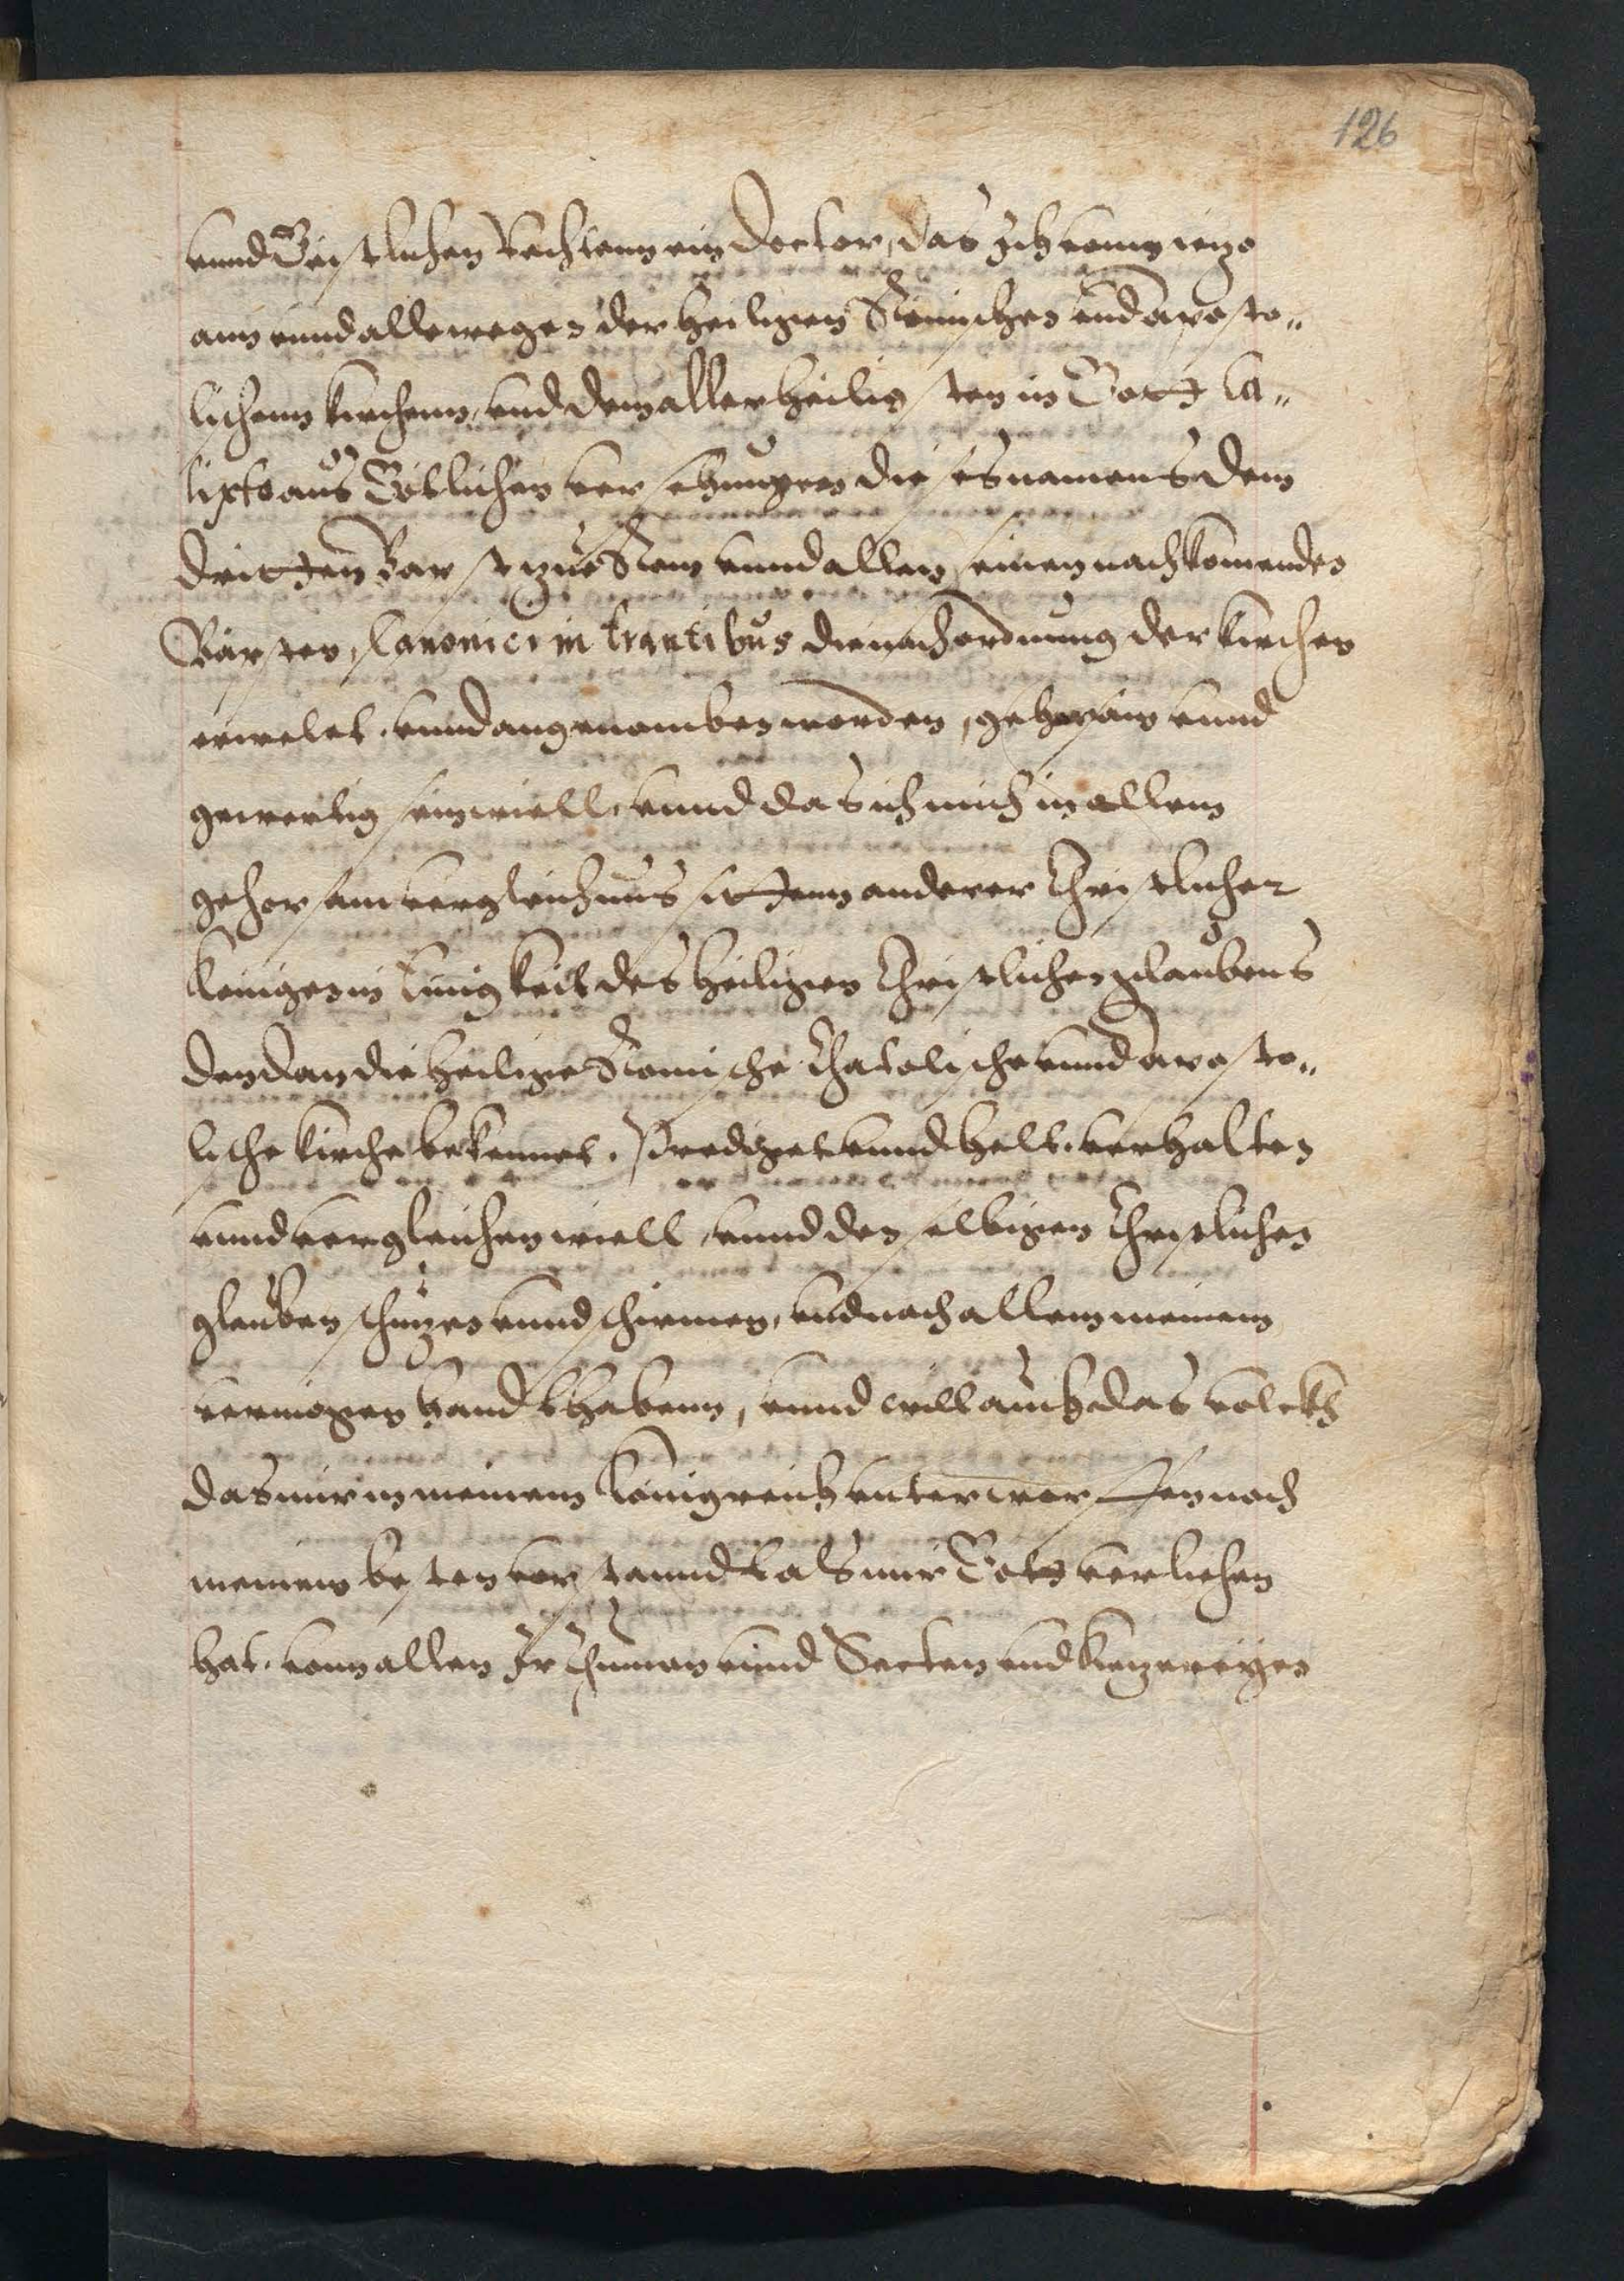 126
vnnd Geistlichen Rechtenn ein Doctor, das Ich vonn ietzo
ann vnnd allewegen der heiligen Römischen vnd aposto„
lichenn kirchenn, vnd dem allerheiligsten in Gott Ca„
lixto aus Götlichen versehungen dieses namens dem
dritten Babst zue Rom vnnd allen seinen nachkomenden
Bäpsten, Canonici intrantibus die nach ordnung der kirchen
erwelet. vnnd angenomben worden, gehorsam vnnd
gewertig sein wiell. vnnd das ich mich in allem
gehorsam vergleich nus sittenn anderer Christlicher
Könige in Einigkeit des heiligen Christlichen glaubens
den dan die heilige Romische Chatolische vnnd aposto„
lische kirche bekennet. Prediget vnnd helt. verhalten
vnnd vergleichen wiell, vnnd den selbigen Christlichen
glauben schutzen vnnd schirmen, vnd nach allem meinem
vermögen handthabenn, vnnd will auch das volckh
das mir in meinem Königreich vnterworffen nach
meinem besten verstanndt als mir Gott verliehen
hat. vonn allen Irthumen vnnd Secten vnd ketzereyen